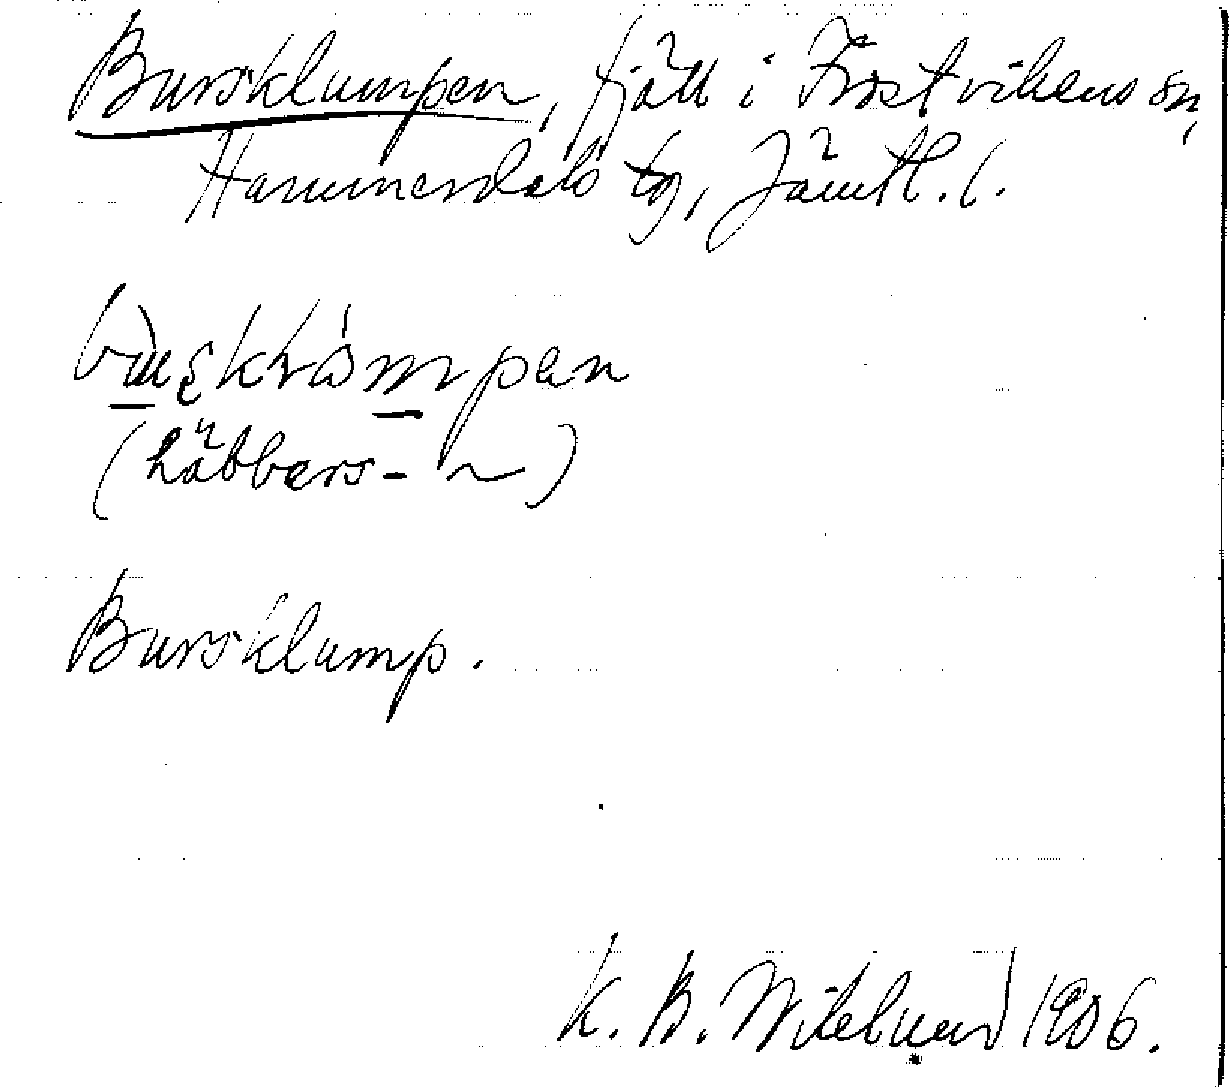 Bursklumpen, fjäll i Frostvikens sn,
Hammerdals tg, Jämtl. l.
(häbbers- ~)
Bursklump.
K. B. Wiklund 1906.